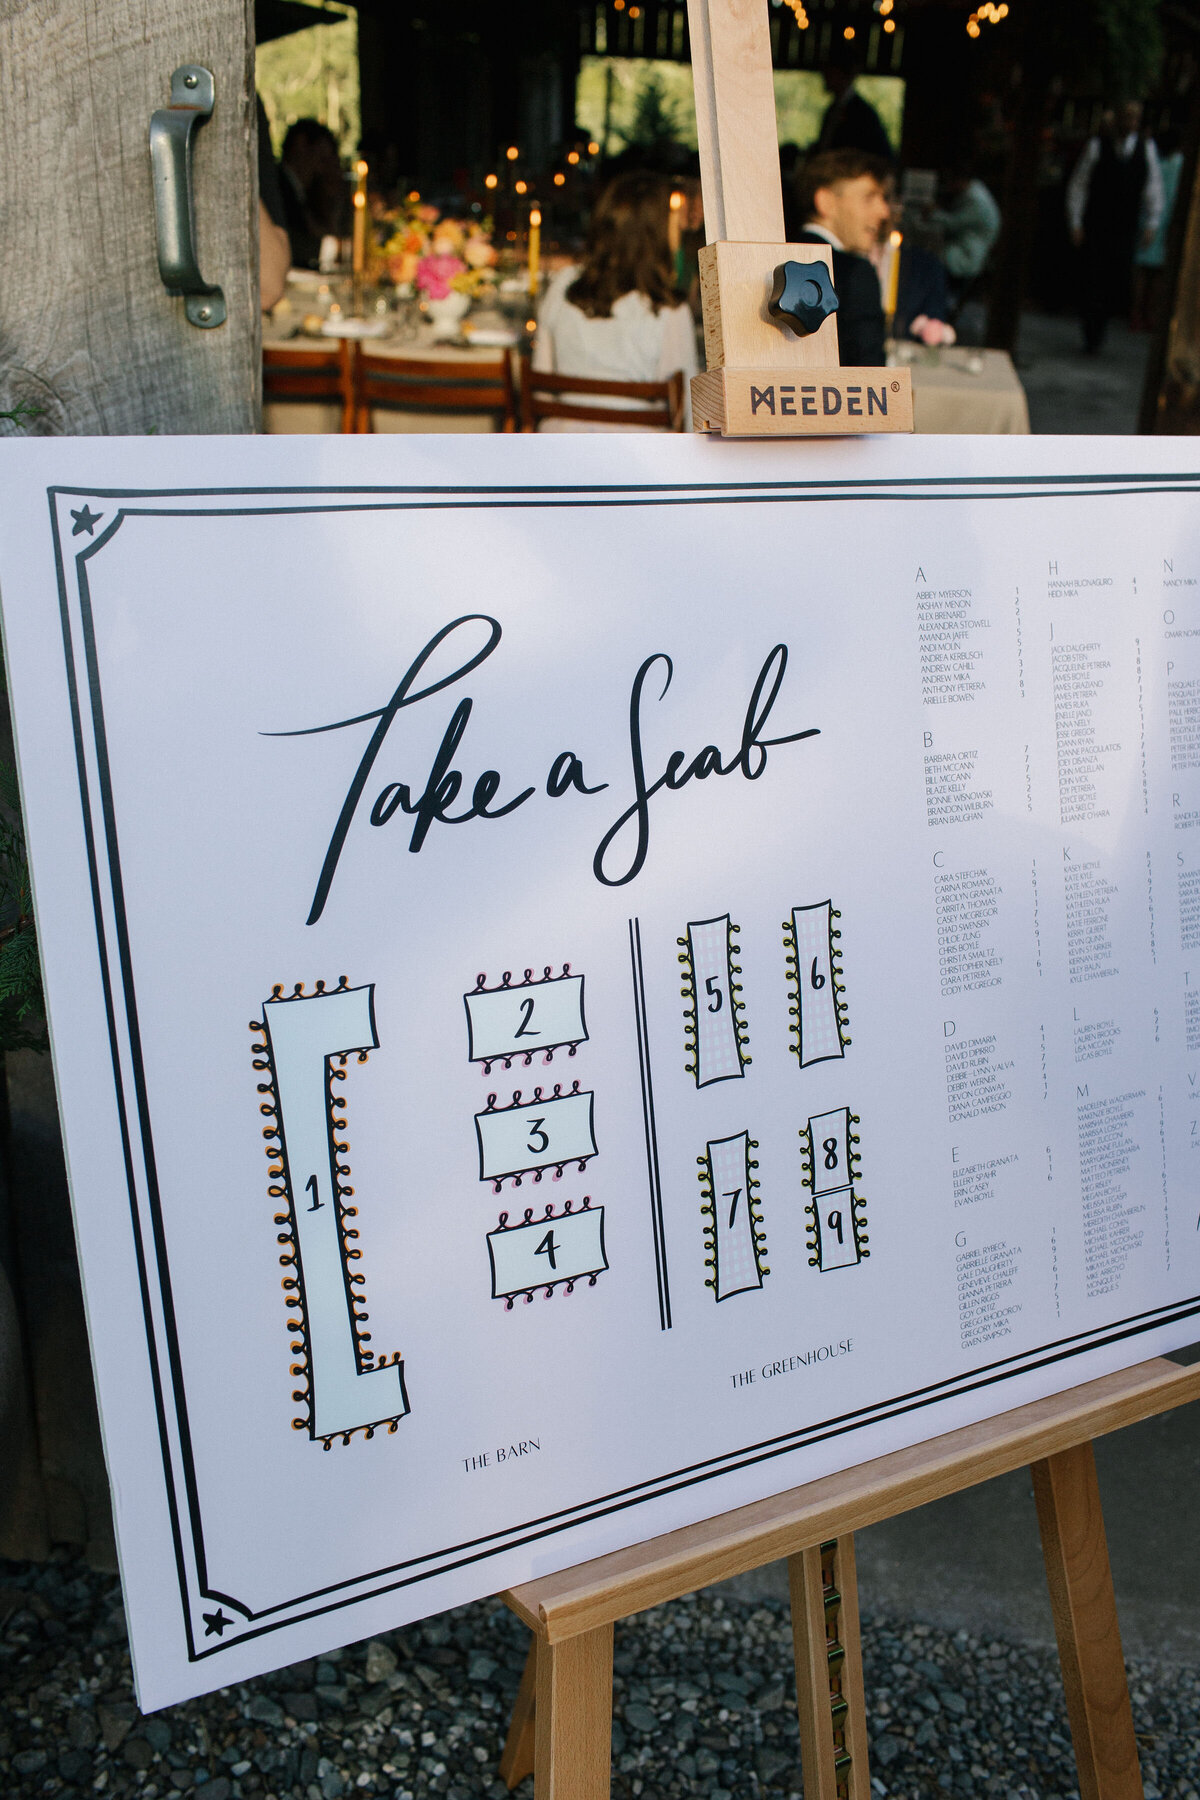 MEEDEN®
Take a Seat
1
2
3
4
5
6
7
8
9
THE BARN
THE GREENHOUSE
A
ABBEY MYERSON 1
AKSHAY MENON 2
ALEX BRENARD 2
ALEXANDRA STOWELL 1
AMANDA JAFFE 5
ANDI MOLIN 5
ANDREA KERBUSCH 7
ANDREW CAHILL 3
ANDREW MIKA 7
ANTHONY PETRERA 8
ARIELLE BOWEN 3
B
BARBARA ORTIZ 7
BETH MCCANN 7
BILL MCCANN 7
BLAZE KELLY 5
BONNIE WISNOWSKI 2
BRANDON WILBURN 5
BRIAN BAUGHAN 5
C
CARA STEFCHAK 1
CARINA ROMANO 5
CAROLYN GRANATA 9
CARRITA THOMAS 1
CASEY MCGREGOR 1
CHAD SWENSEN 7
CHLOE ZUNG 5
CHRIS BOYLE 9
CHRISTA SMALTZ 1
CHRISTOPHER NEELY 1
CIARA PETRERA 6
CODY MCGREGOR 1
D
DAVID DIMARIA 4
DAVID DIPIRRO 1
DAVID RUBIN 5
DEBBIE-LYNN VALVA 7
DEBBY WERNER 7
DEVON CONWAY 4
DIANA CAMPEGGIO 1
DONALD MASON 7
E
ELIZABETH GRANATA 6
ELLERY SPAHR 1
ERIN CASEY 1
EVAN BOYLE 6
G
GABRIEL RYBECK 1
GABRIELLE GRANATA 6
GALE DAUGHERTY 9
GENEVIEVE CHALEFF 3
GIANNA PETRERA 6
GILLEN RIGGS 1
GOY ORTIZ 7
GREGG KHODOROV 5
GREGORY MIKA 3
GWEN SIMPSON 1
H
HANNAH BUONAGURO 4
HEIDI MIKA 3
J
JACK DAUGHERTY 9
JACOB STEN 1
JACQUELINE PETRERA 8
JAMES BOYLE 8
JAMES GRAZIANO 7
JAMES PETRERA
JAMES RUKA
JENELLE JANCI
JENNA NEELY
JESSE GREGOR
JOANN RYAN
JOANNE PAGOULATOS
JOEY DISANZA
JOHN MCLELLAN
JOHN VICK
JOY PETRERA
JOYCE BOYLE
JULIA SKELCY
JULIANNE O'HARA 4
K
KASEY BOYLE 8
KATE KYLE 2
KATE MCCANN
KATHLEEN PETRERA
KATHLEEN RUKA
KATIE DILLON
KATIE FERRONE
KERRY GILBERT
KEVIN QUINN
KIERNAN BOYLE
KILEY BAUN
KYLE CHAMBERLIN
L
LAUREN BOYLE 6
LAUREN BROOKS 2
LISA MCCANN 7
LUCAS BOYLE 6
M
MADELEINE WACKERMAN
MAKENZIE BOYLE
MARISHA CHAMBERS
MARISSA LOSOYA
MARY ZUCCONI
MARYANNE FULLAN
MARYGRACE DIMARIA
MATT MCINERNEY
MATTEO PETRERA
MEG RISLEY
MEGAN BOYLE
MELISSA LEGASPI
MELISSA RUBIN
MEREDITH CHAMBERLIN
MICHAEL COHEN
MICHAEL KAHRER
MICHAEL MCDONALD
MICHAEL MICHOWSKI
MIKAYLA BOYLE
MIKE ARROYO
MONIQUE M
MONIQUE S
N
NANCY MIKA
O
P
R
S
T
V
Z